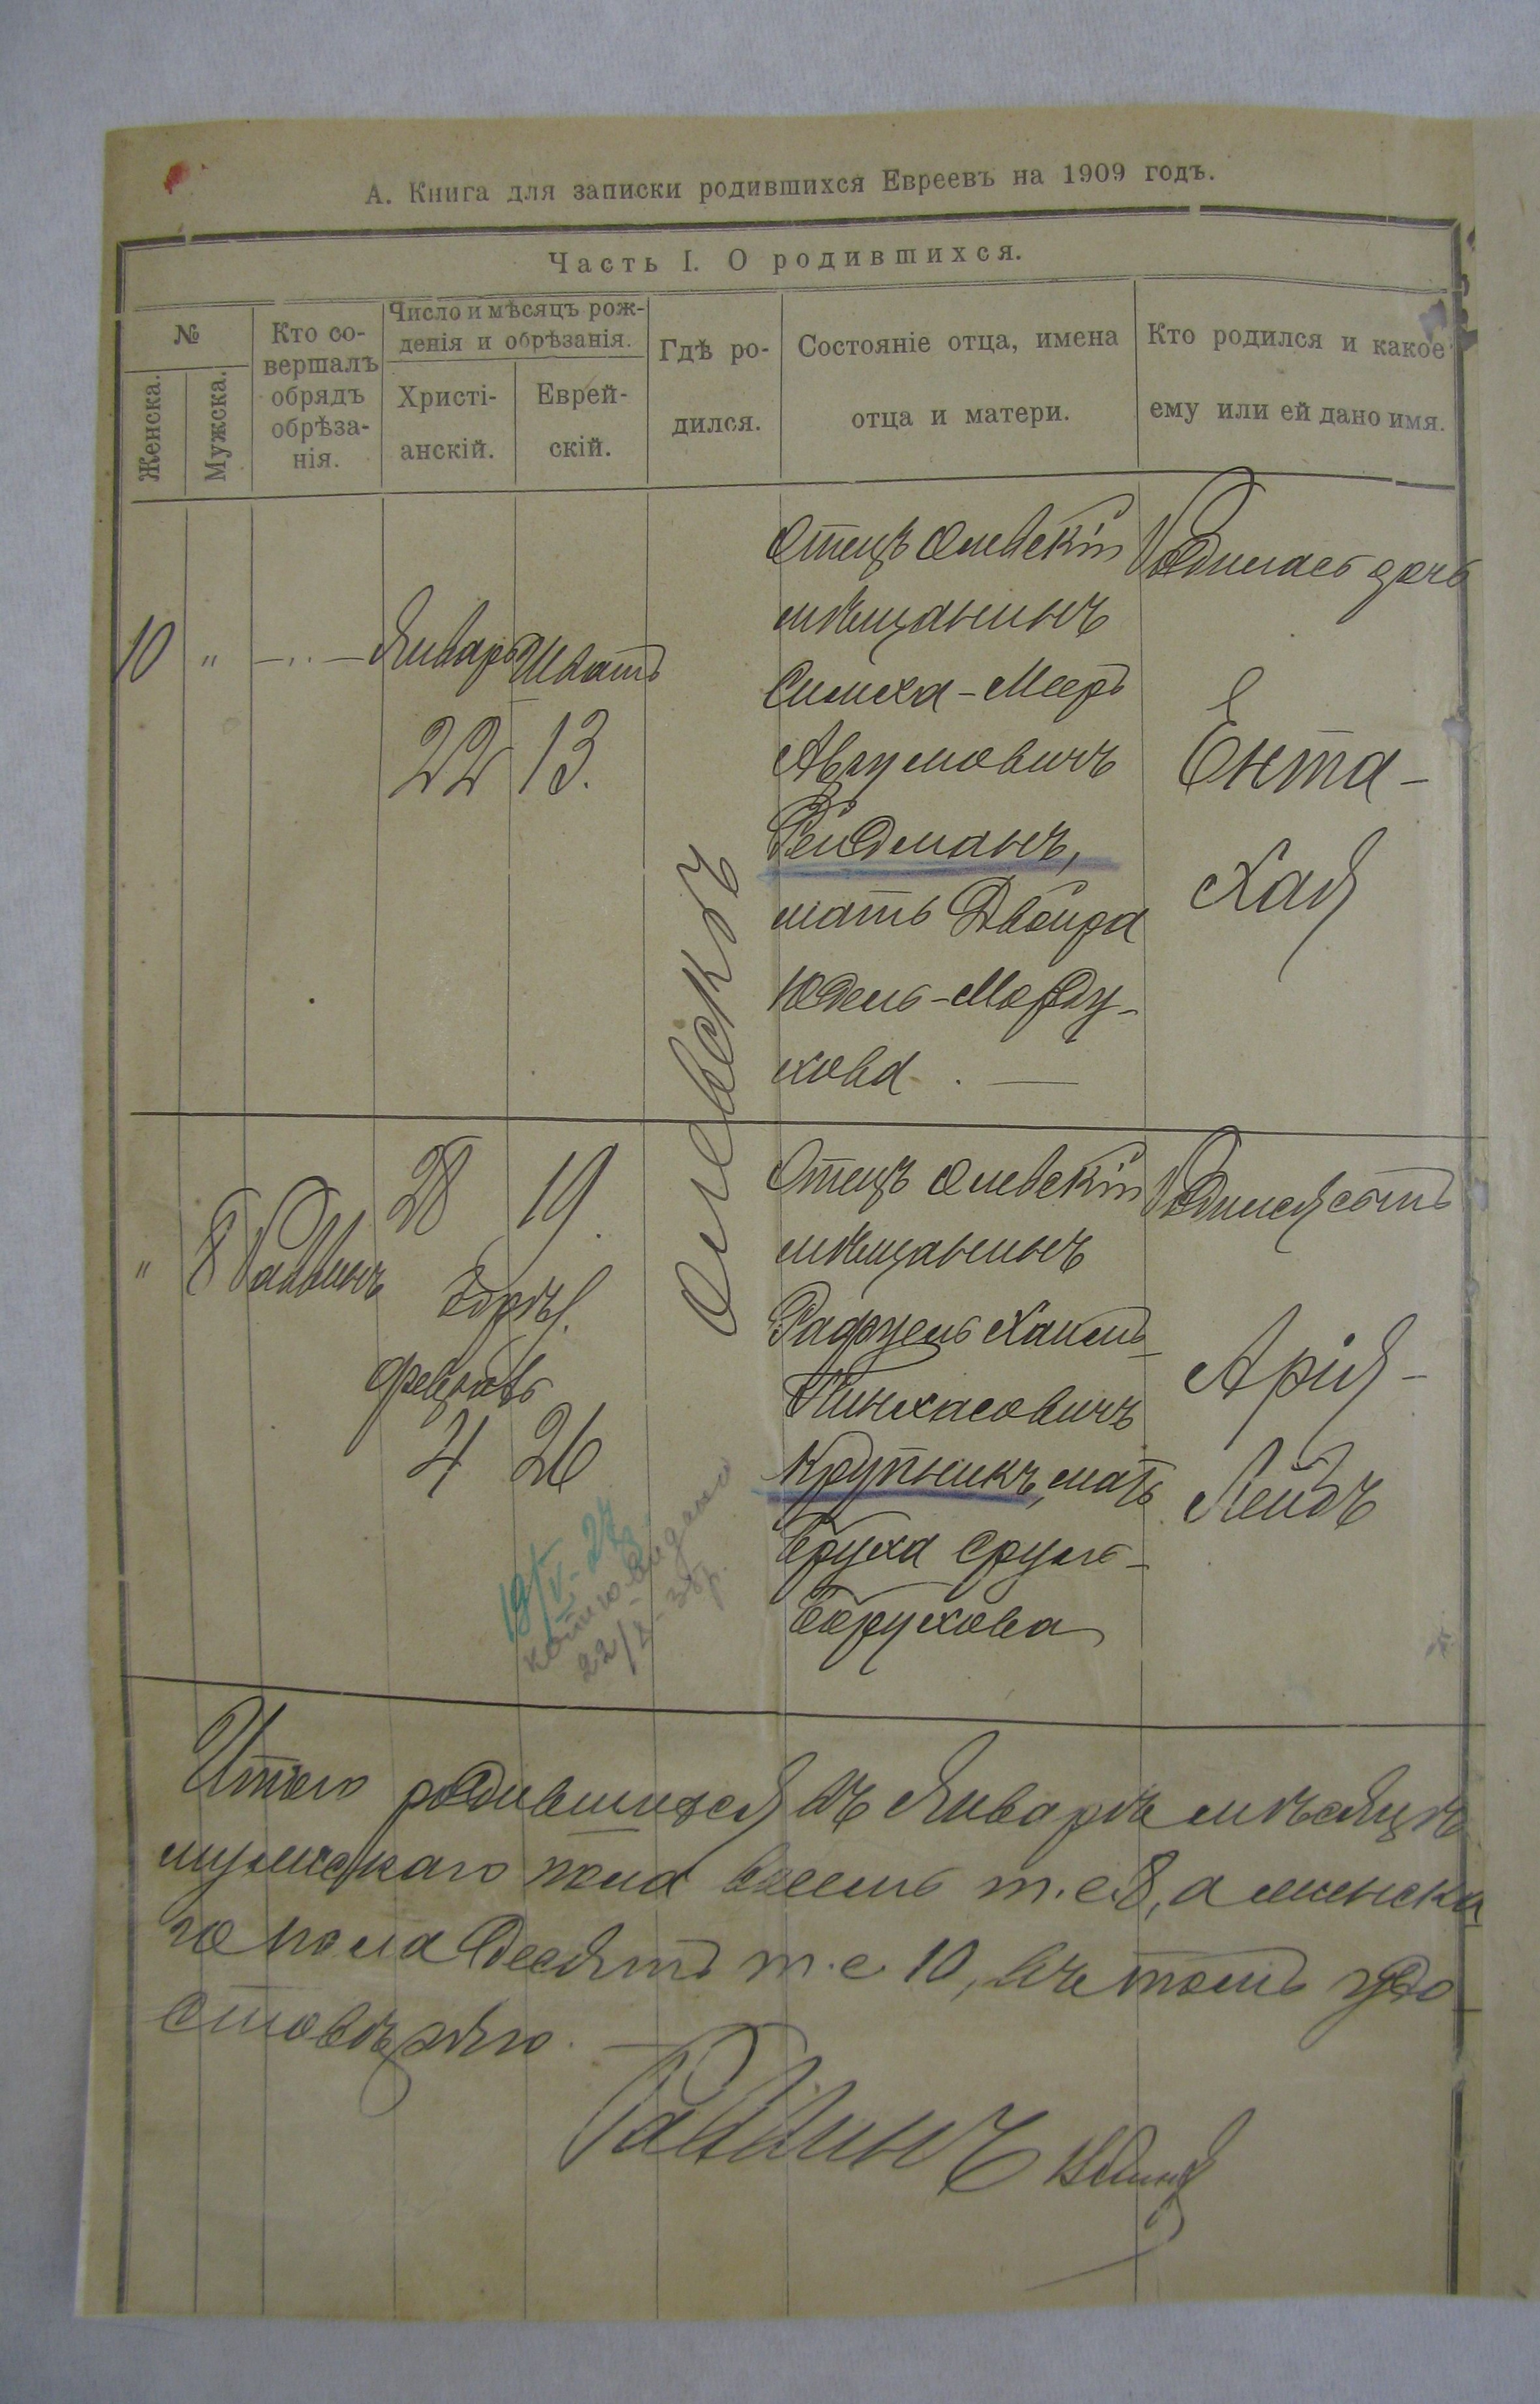 А. Книга для записки родившихся Евреевъ на 1909 годъ.
Часть I. О родившихся.
№
Женска.
Мужска.
Кто со-
вершалъ
обрядъ
обрѣза-
нія.
Число и мѣсяцъ рож-
денія и обрѣзанія.
Христі-
анскій.
Еврей-
скій.
Гдѣ ро-
дился.
Состояніе отца, имена
отца и матери.
Кто родился и какое
ему или ей дано имя.
10
"
Январь
22
Шватъ
13.
Олевскъ
Отецъ Олевскій
мѣщанинъ
Симха-Мееръ
Аврумовичъ
Рейдманъ,
мать Двойра
Юдель-Морду-
хова.
Родилась дочь
Ента-
Хая
"
8
Раввинъ
28
19.
Февраль
4
26
Отецъ Олевскій
мѣщанинъ
Рафуель Хаимъ
Пинхасовичъ
Крупникъ, мать
Бруха Сруль-
Борухова
Родился сынъ
Арія-
Лейбъ
19/V-27г.
копию выдано
Итого родившихся въ Январѣ мѣсяцѣ
мужескаго пола восемь т.е. 8, а женска
го пола десять т.е. 10, въ томъ удо-
стовѣряю.
Раввинъ